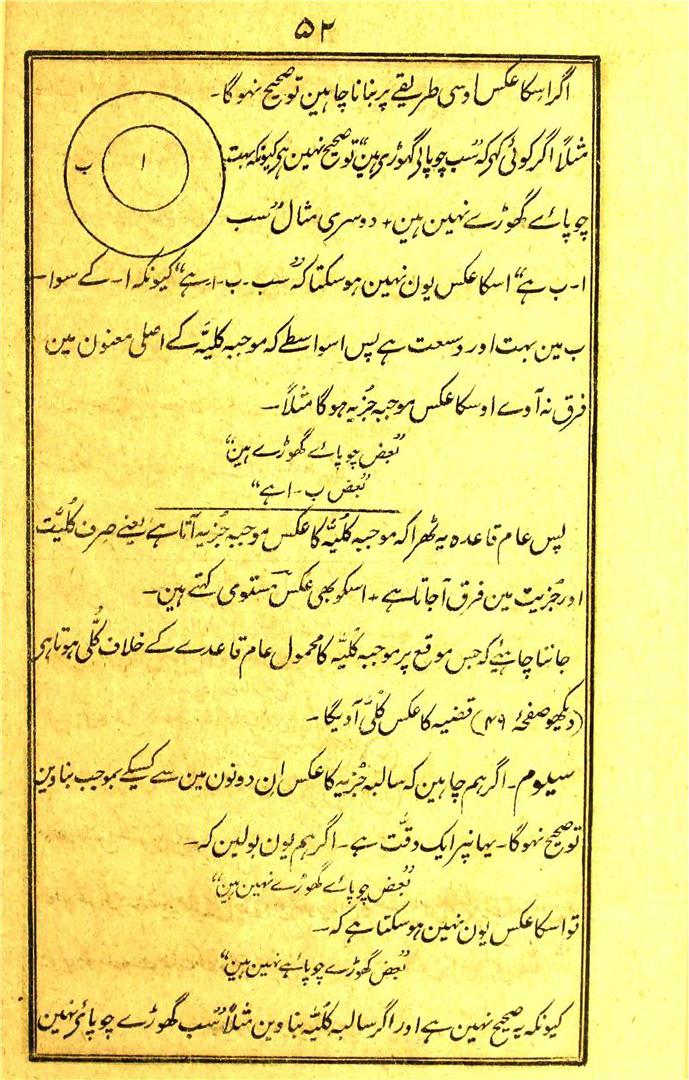 ۵۲
اگر اسکا عکس اوسی طریقے پر بنانا چاہین تو صحیح نہوگا۔
مثلاً اگر کوئی کہے کہ "سب چوپائی گھوڑی ہین" تو صحیح نہین ہی کیونکہ بہت
ا
ب
چوپائے گھوڑے نہین ہین + دوسری مثال "سب
ا۔ب ہے" اسکا عکس یون نہین ہوسکتا کہ "سب۔ب۔ا۔ہے" کیونکہ ا۔ کے سوا۔
ب مین بہت اور وسعت ہے پس اسواسطے کہ موجبہ کلیّہ کے اصلی معنون مین
فرق نہ آوے اوسکا عکس موجبہ جُزیہ ہوگا مثلاً۔
"بعض چوپائے گھوڑے ہین"
"بعض ب۔ا ہے"
پس عام قاعدہ یہ ٹھرا کہ موجبہ کلیّہ کا عکس موجبہ جُزیہ آتا ہے یعنے صرف کُلیّت
اور جُزیت مین فرق آجاتا ہے + اسکو بھی عکس مستوی کہتے ہین۔
جاننا چاہیئے کہ جس موقع پر موجبہ کُلیّہ کا محمول عام قاعدے کے خلاف کُلّی ہوتا ہی
(دیکھو صفحۂ ۴۹) قضیہ کا عکس کُلّی آویگا۔
سیلوم۔ اگر ہم چاہین کہ سالبہ جُزیہ کا عکس اِن دونون مین سے کسیکے بموجب بناوین
تو صحیح نہوگا۔ یہانپر ایک دقّت ہے۔ اگر ہم یون بولین کہ۔
"بعض چوپائے گھوڑے نہین ہین"
تو اسکا عکس یون نہین ہوسکتا ہے کہ۔
"بعض گھوڑے چوپائے نہین ہین"
کیونکہ یہ صحیح نہین ہے اور اگر سالبہ کلیّہ بناوین مثلاً "سب گھوڑے چوپائے نہین